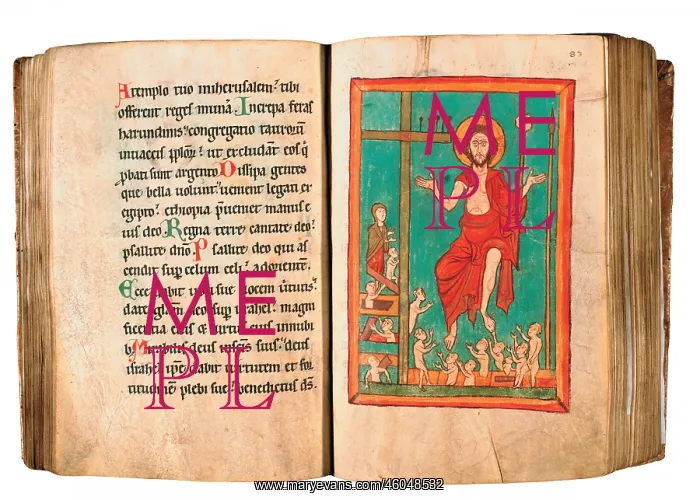 A templo tuo in iherusalem: tibi
offerent reges mun̄a. Increpa feras
harundinis: congregatio tauroꝝ
in uaccis pploꝝ: ut excludant eos q̇
ꝓbati sunt argento. Dissipa gentes
que bella uolunt: uenient legati ex
egipto: ethiopia p̄ueniet manus e
ius deo. Regna terre cantate deo:
psallite dn̄o. Psallite deo qui as
cendit sup̱ celum celi: ad orientem.
Ecce dabit uoci sue uocem uirtutis:
date gl̄am deo sup̱ israhel: magni
ficentia eius & uirtus eius in nubi
b; Mirabilis deus in sc̄is suis: deus
israhel ipse dabit uirtutem et for
titudinē plebi sue: benedictus ds̄.
83
ME
PL
ME
PL
www.maryevans.com/46048532